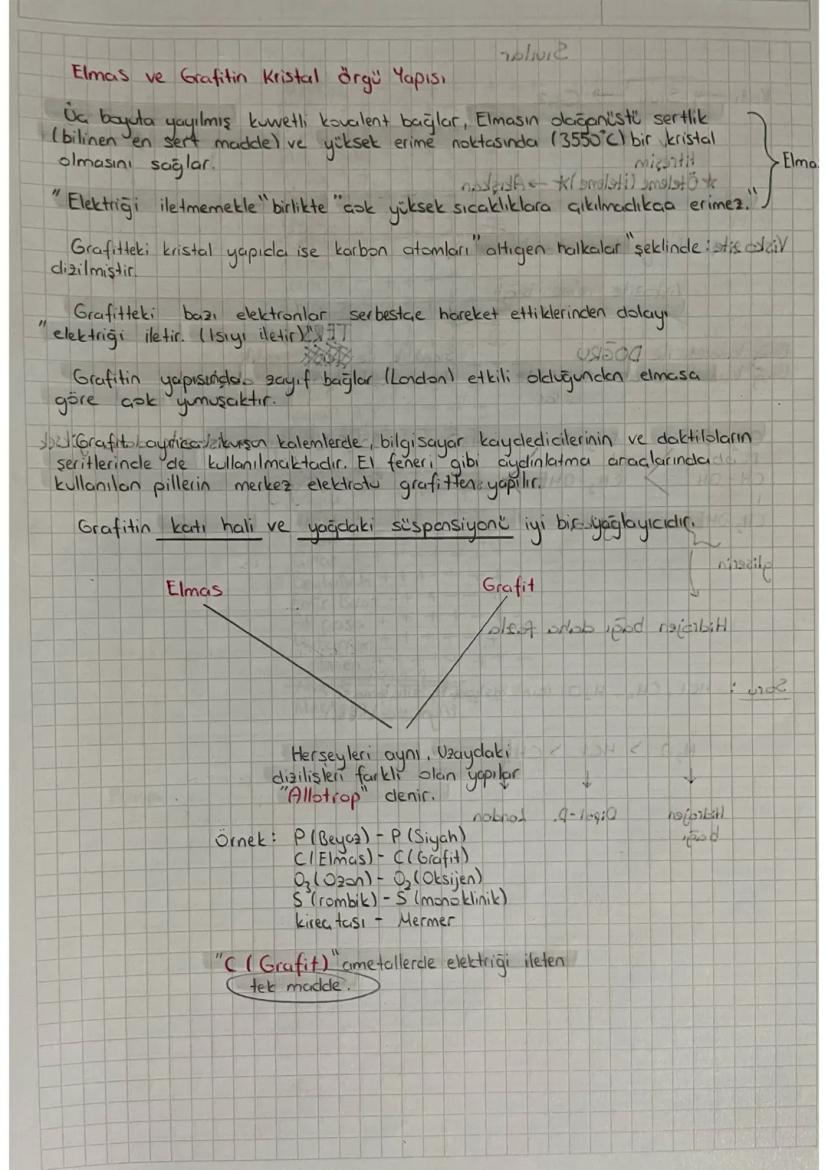 Elmas ve Grafitin Kristal Örgü Yapısı
Üç boyuta yayılmış kuvvetli kovalent bağlar, Elmasın olağanüstü sertlik
(bilinen en sert madde) ve yüksek erime noktasında (3550°C) bir kristal
olmasını sağlar.
Elma
"Elektriği iletmemekle" birlikte "çok yüksek sıcaklıklara çıkılmadıkça erimez."
Grafitteki kristal yapıda ise karbon atomları "altıgen halkalar" şeklinde
dizilmiştir.
Grafitteki bazı elektronlar serbestçe hareket ettiklerinden dolayı
"elektriği iletir. (Isıyı iletir)"
Grafitin yapısında zayıf bağlar (London) etkili olduğundan elmasa
göre çok yumuşaktır.
Grafit ayrıca kurşun kalemlerde, bilgisayar kaydedicilerinin ve daktiloların
şeritlerinde de kullanılmaktadır. El feneri gibi aydınlatma araçlarında
kullanılan pillerin merkez elektrotu grafitten yapılır.
Grafitin katı hali ve yağdaki süspansiyonu iyi bir yağlayıcıdır.
Elmas Grafit
Herşeyleri aynı, Uzaydaki
dizilişleri farklı olan yapılar
"Allotrop" denir.
Örnek: P (Beyaz) - P (Siyah)
C (Elmas) - C (Grafit)
O₃ (Ozon) - O₂ (Oksijen)
S (rombik) - S (monoklinik)
kireç taşı - Mermer
"C (Grafit)" ametallerde elektriği ileten
tek madde.